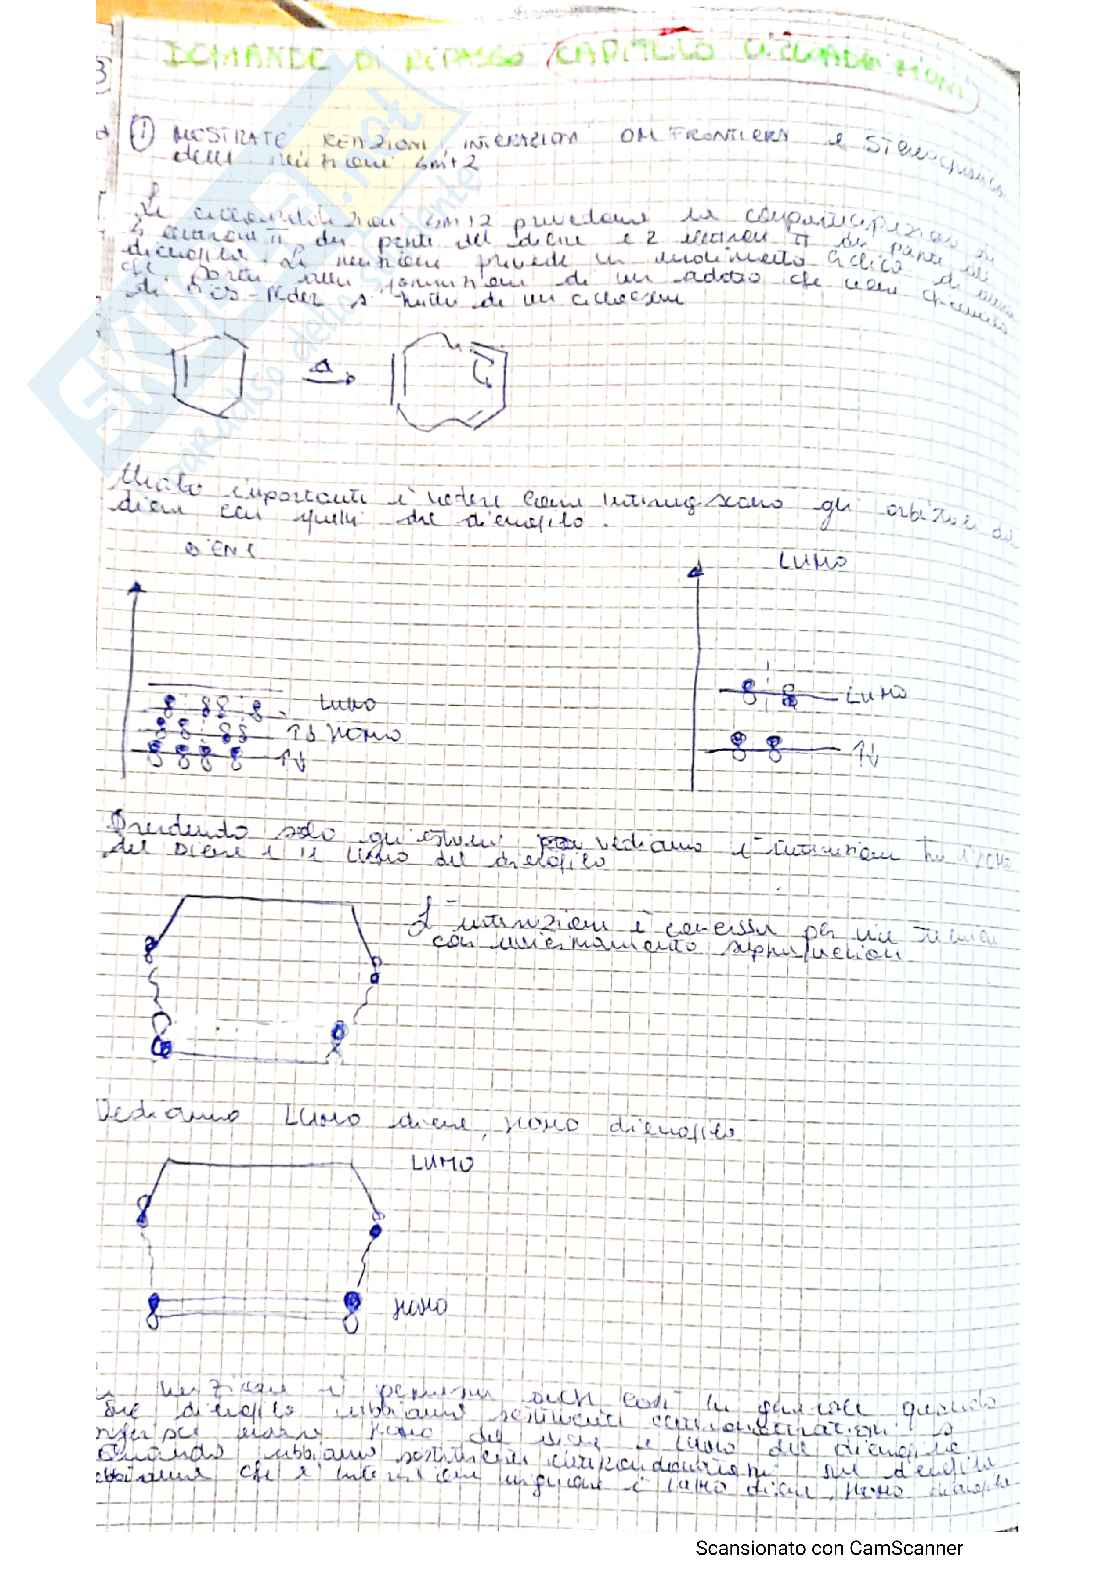 DOMANDE DI RIPASSO CAPITOLO CICLOADDIZIONI
① MOSTRATE REAZIONI, INTERAZIONI OM FRONTIERA e STEREOCHIMICA
delle reazioni 4m+2
Le cicloaddizioni 4m+2 prevedono la compartecipazione di
elettroni π da parte del diene e 2 elettroni π da parte del
dienofilo. La reazione prevede un movimento ciclico di
che porta alla formazione di un addotto che viene chiamato
di Diels-Alder si tratta di un cicloesene
Δ
Molto importante è vedere come interagiscono gli orbitali del
diene con quelli del dienofilo.
DIENE
LUMO
LUMO
↑↓ HOMO
↑↓
LUMO
↑↓
Prendendo solo gli estremi vediamo l'interazione tra HOMO
del Diene e il LUMO del dienofilo
L'interazione è concessa per via
con avvicinamento suprafacciale
Vediamo LUMO diene, HOMO dienofilo
LUMO
HOMO
reazione è permessa anche così in generale quando
sul dienofilo abbiamo sostituenti elettronattrattori
HOMO del diene e LUMO del dienofilo
quando abbiamo sostituenti elettrondonatori sul dienofilo
abbiamo che l'interazione migliore è LUMO diene, HOMO dienofilo
Scansionato con CamScanner
SKUOLA.net